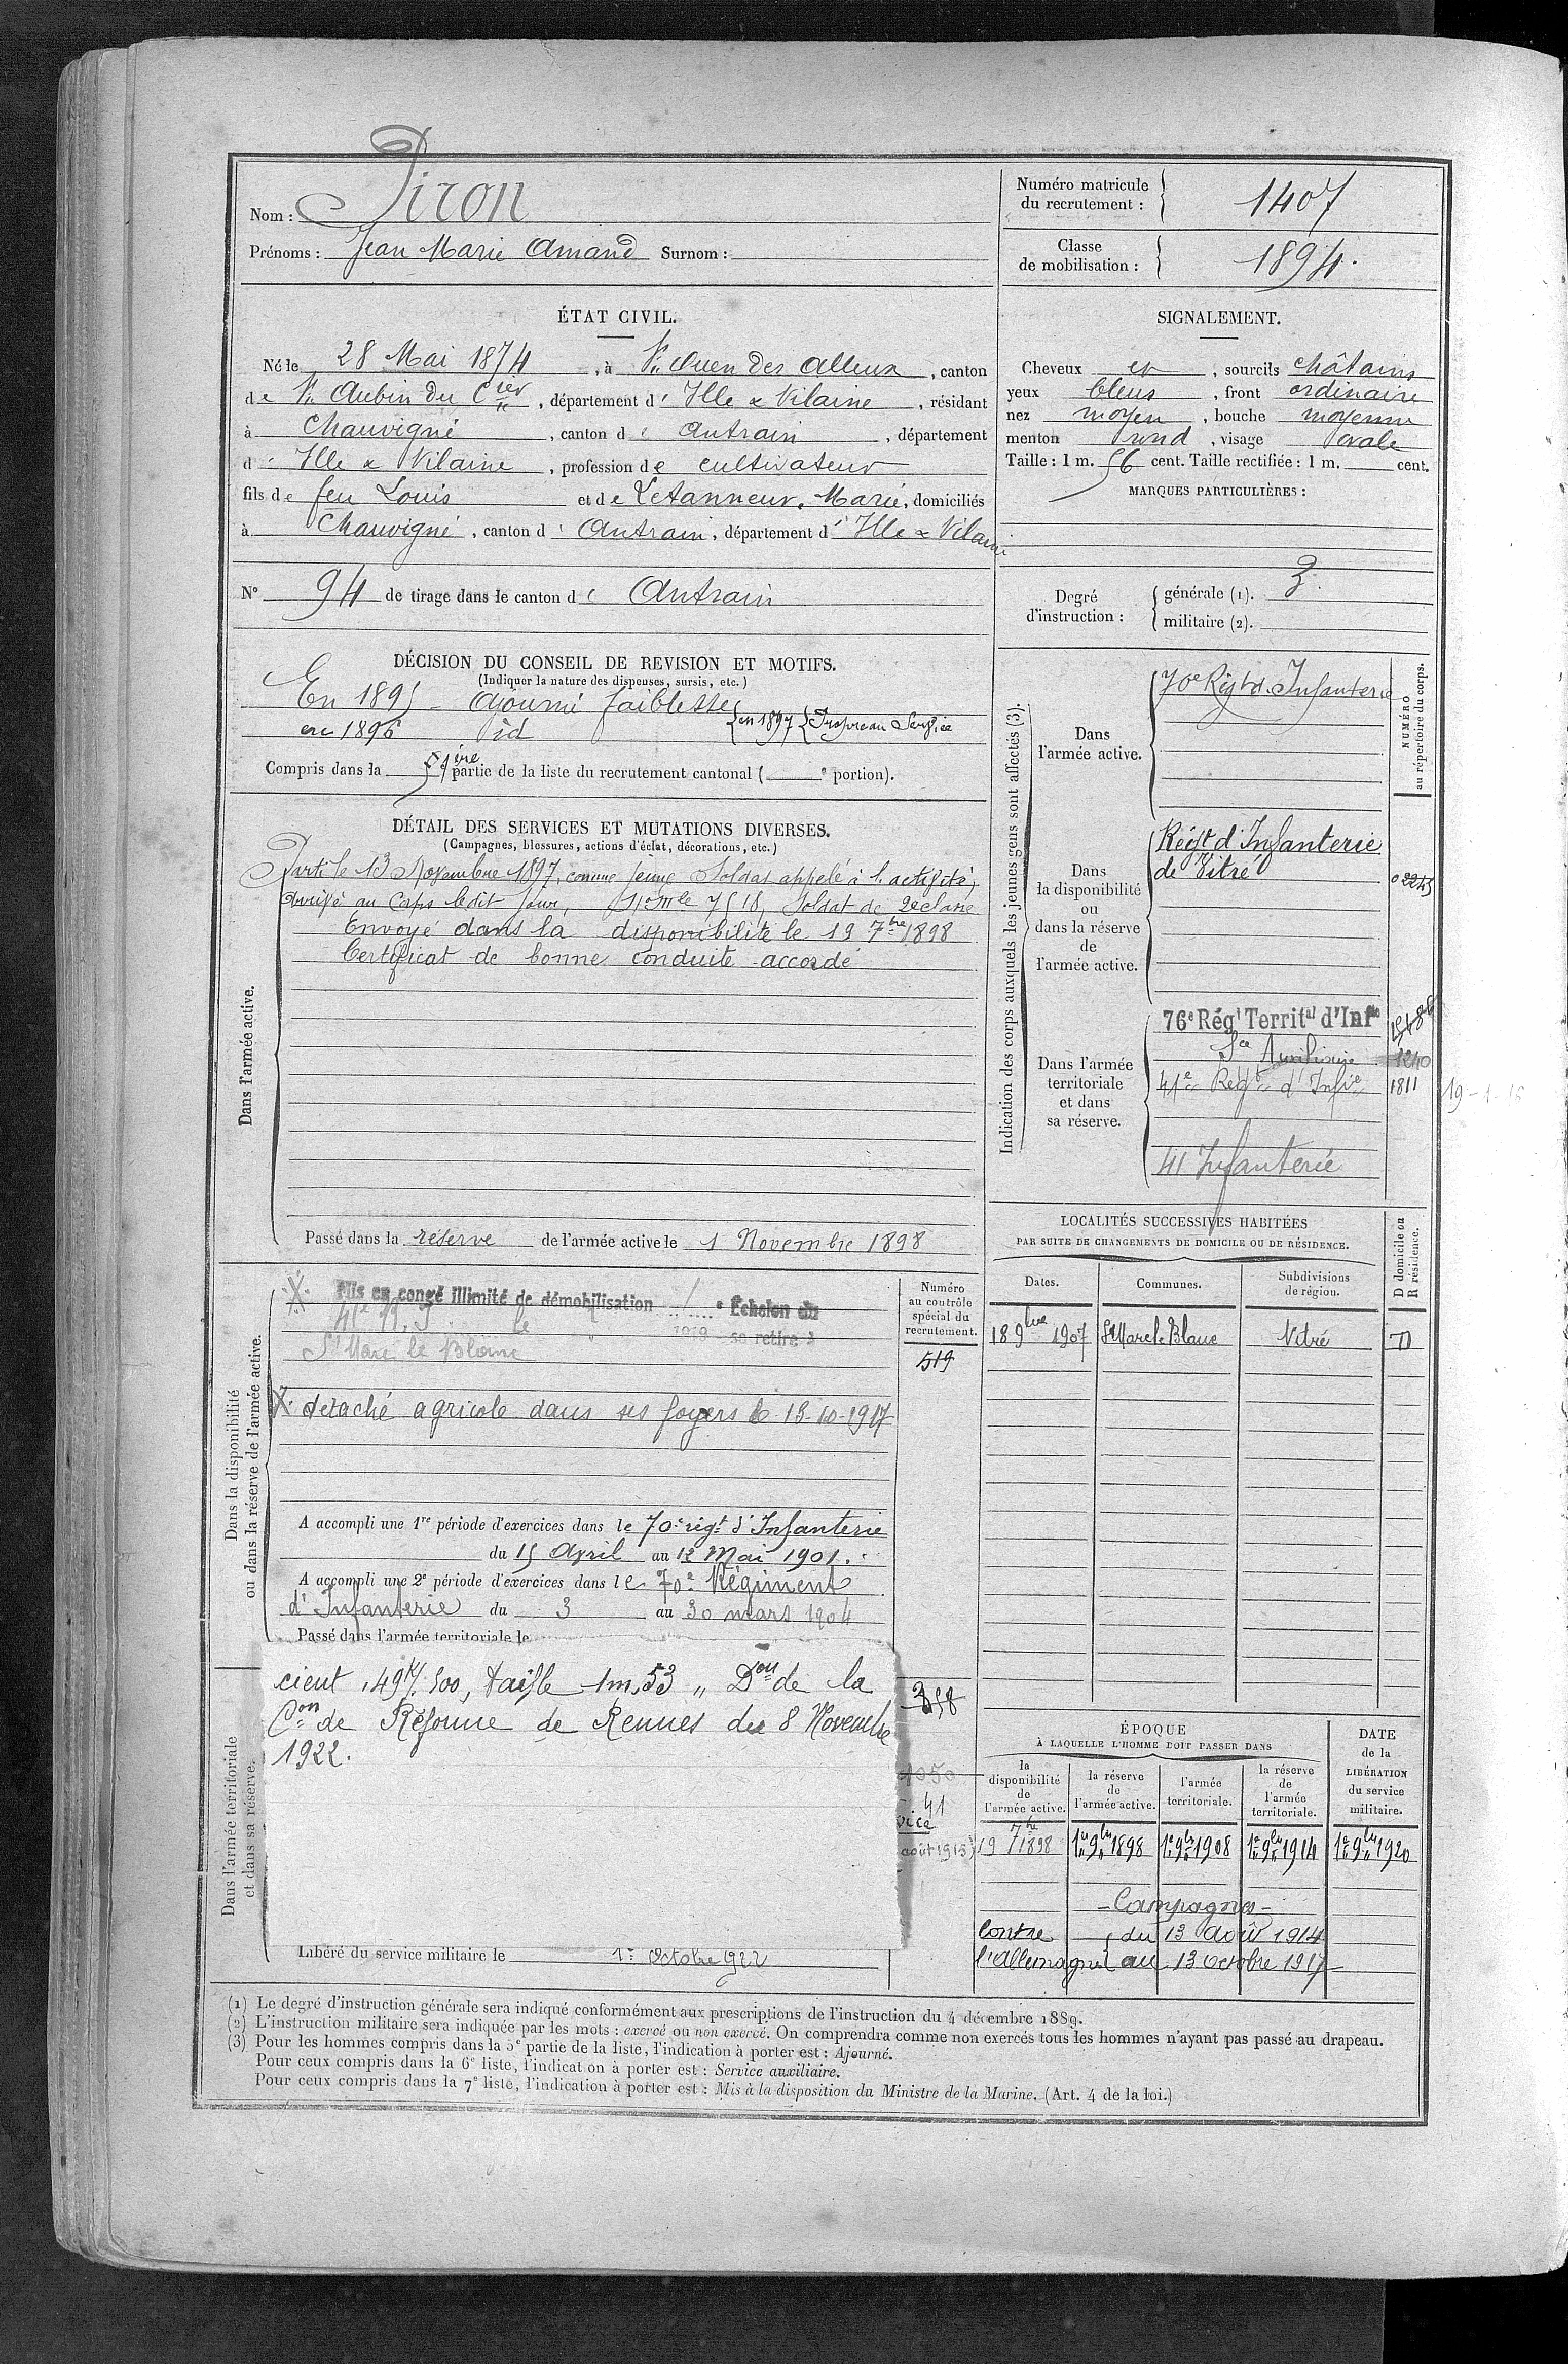 Nom : Piron
Prénoms : Jean Marie Amand Surnom :
Numéro matricule du recrutement : 1407
Classe de mobilisation : 1894.
ÉTAT CIVIL.
Né le 28 Mai 1874, à St Ouen des Alleux, canton
de St Aubin du Cier, département d' Ille & Vilaine, résidant
à Chauvigné, canton d' Antrain, département
d' Ille & Vilaine, profession de cultivateur
fils de feu Louis et de Letanneur, Marie, domiciliés
à Chauvigné, canton d' Antrain, département d' Ille & Vilaine
N° 94 de tirage dans le canton d' Antrain
SIGNALEMENT.
Cheveux et, sourcils châtains
yeux bleus, front ordinaire
nez moyen, bouche moyenne
menton rond, visage ovale
Taille : 1 m. 56 cent. Taille rectifiée : 1 m. cent.
MARQUES PARTICULIÈRES :
Degré d'instruction :
générale (1). 3
militaire (2).
DÉCISION DU CONSEIL DE REVISION ET MOTIFS.
(Indiquer la nature des dispenses, sursis, etc.)
En 1895 - Ajourné faiblesse
en 1896 id en 1897 Propre au Service
Compris dans la 1ère partie de la liste du recrutement cantonal ( e portion).
DÉTAIL DES SERVICES ET MUTATIONS DIVERSES.
(Campagnes, blessures, actions d'éclat, décorations, etc.)
Dans l'armée active.
Parti le 13 Novembre 1897, comme jeune Soldat appelé à l'activité,
arrivé au Corps ledit jour, No Mle 7518, Soldat de 2e classe
Envoyé dans la disponibilité le 19 7bre 1898
Certificat de bonne conduite accordé
Passé dans la réserve de l'armée active le 1 Novembre 1898
Indication des corps auxquels les jeunes gens sont affectés (3).
NUMÉRO au répertoire du corps.
Dans l'armée active.
70e Régt d'Infanterie
Dans la disponibilité ou dans la réserve de l'armée active.
Régt d'Infanterie
de Vitré
02245
Dans l'armée territoriale et dans sa réserve.
76e Régt Territal d'Infie
Sce Auxiliaire 1240
41e Regt d'Infie 1811
19-1-16
41 Infanterie
LOCALITÉS SUCCESSIVES HABITÉES
PAR SUITE DE CHANGEMENTS DE DOMICILE OU DE RÉSIDENCE.
D domicile ou R résidence.
Dates. Communes. Subdivisions de région.
1907 St Marc le Blanc Vitré D
Dans la disponibilité ou dans la réserve de l'armée active.
Numéro au contrôle spécial du recrutement.
519
Mis en congé illimité de démobilisation e Echelon du
41e R.I. le 1919 se retire à
St Marc le Blanc
X détaché agricole dans ses foyers le 13-10-1917
A accompli une 1re période d'exercices dans le 70e régt d'Infanterie
du 15 Avril au 12 Mai 1901.
A accompli une 2e période d'exercices dans le 70e Régiment
d'Infanterie du 3 au 30 mars 1904
Passé dans l'armée territoriale le
Dans l'armée territoriale et dans sa réserve.
cient, 49k,500, taille 1m,53 „ Don de la
Con de Réforme de Rennes du 8 Novembre
1922.
1050
41
vice
août 1915)
Libéré du service militaire le 1er Octobre 1922
ÉPOQUE
À LAQUELLE L'HOMME DOIT PASSER DANS
la disponibilité de l'armée active.
la réserve de l'armée active.
l'armée territoriale.
la réserve de l'armée territoriale.
DATE de la LIBÉRATION du service militaire.
19 7bre 1898 1er 9bre 1898 1er 9bre 1908 1er 9bre 1914 1er 9bre 1920
- Campagnes -
Contre du 13 Août 1914
l'Allemagne au 13 octobre 1917
(1) Le degré d'instruction générale sera indiqué conformément aux prescriptions de l'instruction du 4 décembre 1889.
(2) L'instruction militaire sera indiquée par les mots : exercé ou non exercé. On comprendra comme non exercés tous les hommes n'ayant pas passé au drapeau.
(3) Pour les hommes compris dans la 5e partie de la liste, l'indication à porter est : Ajourné.
Pour ceux compris dans la 6e liste, l'indication à porter est : Service auxiliaire.
Pour ceux compris dans la 7e liste, l'indication à porter est : Mis à la disposition du Ministre de la Marine. (Art. 4 de la loi.)